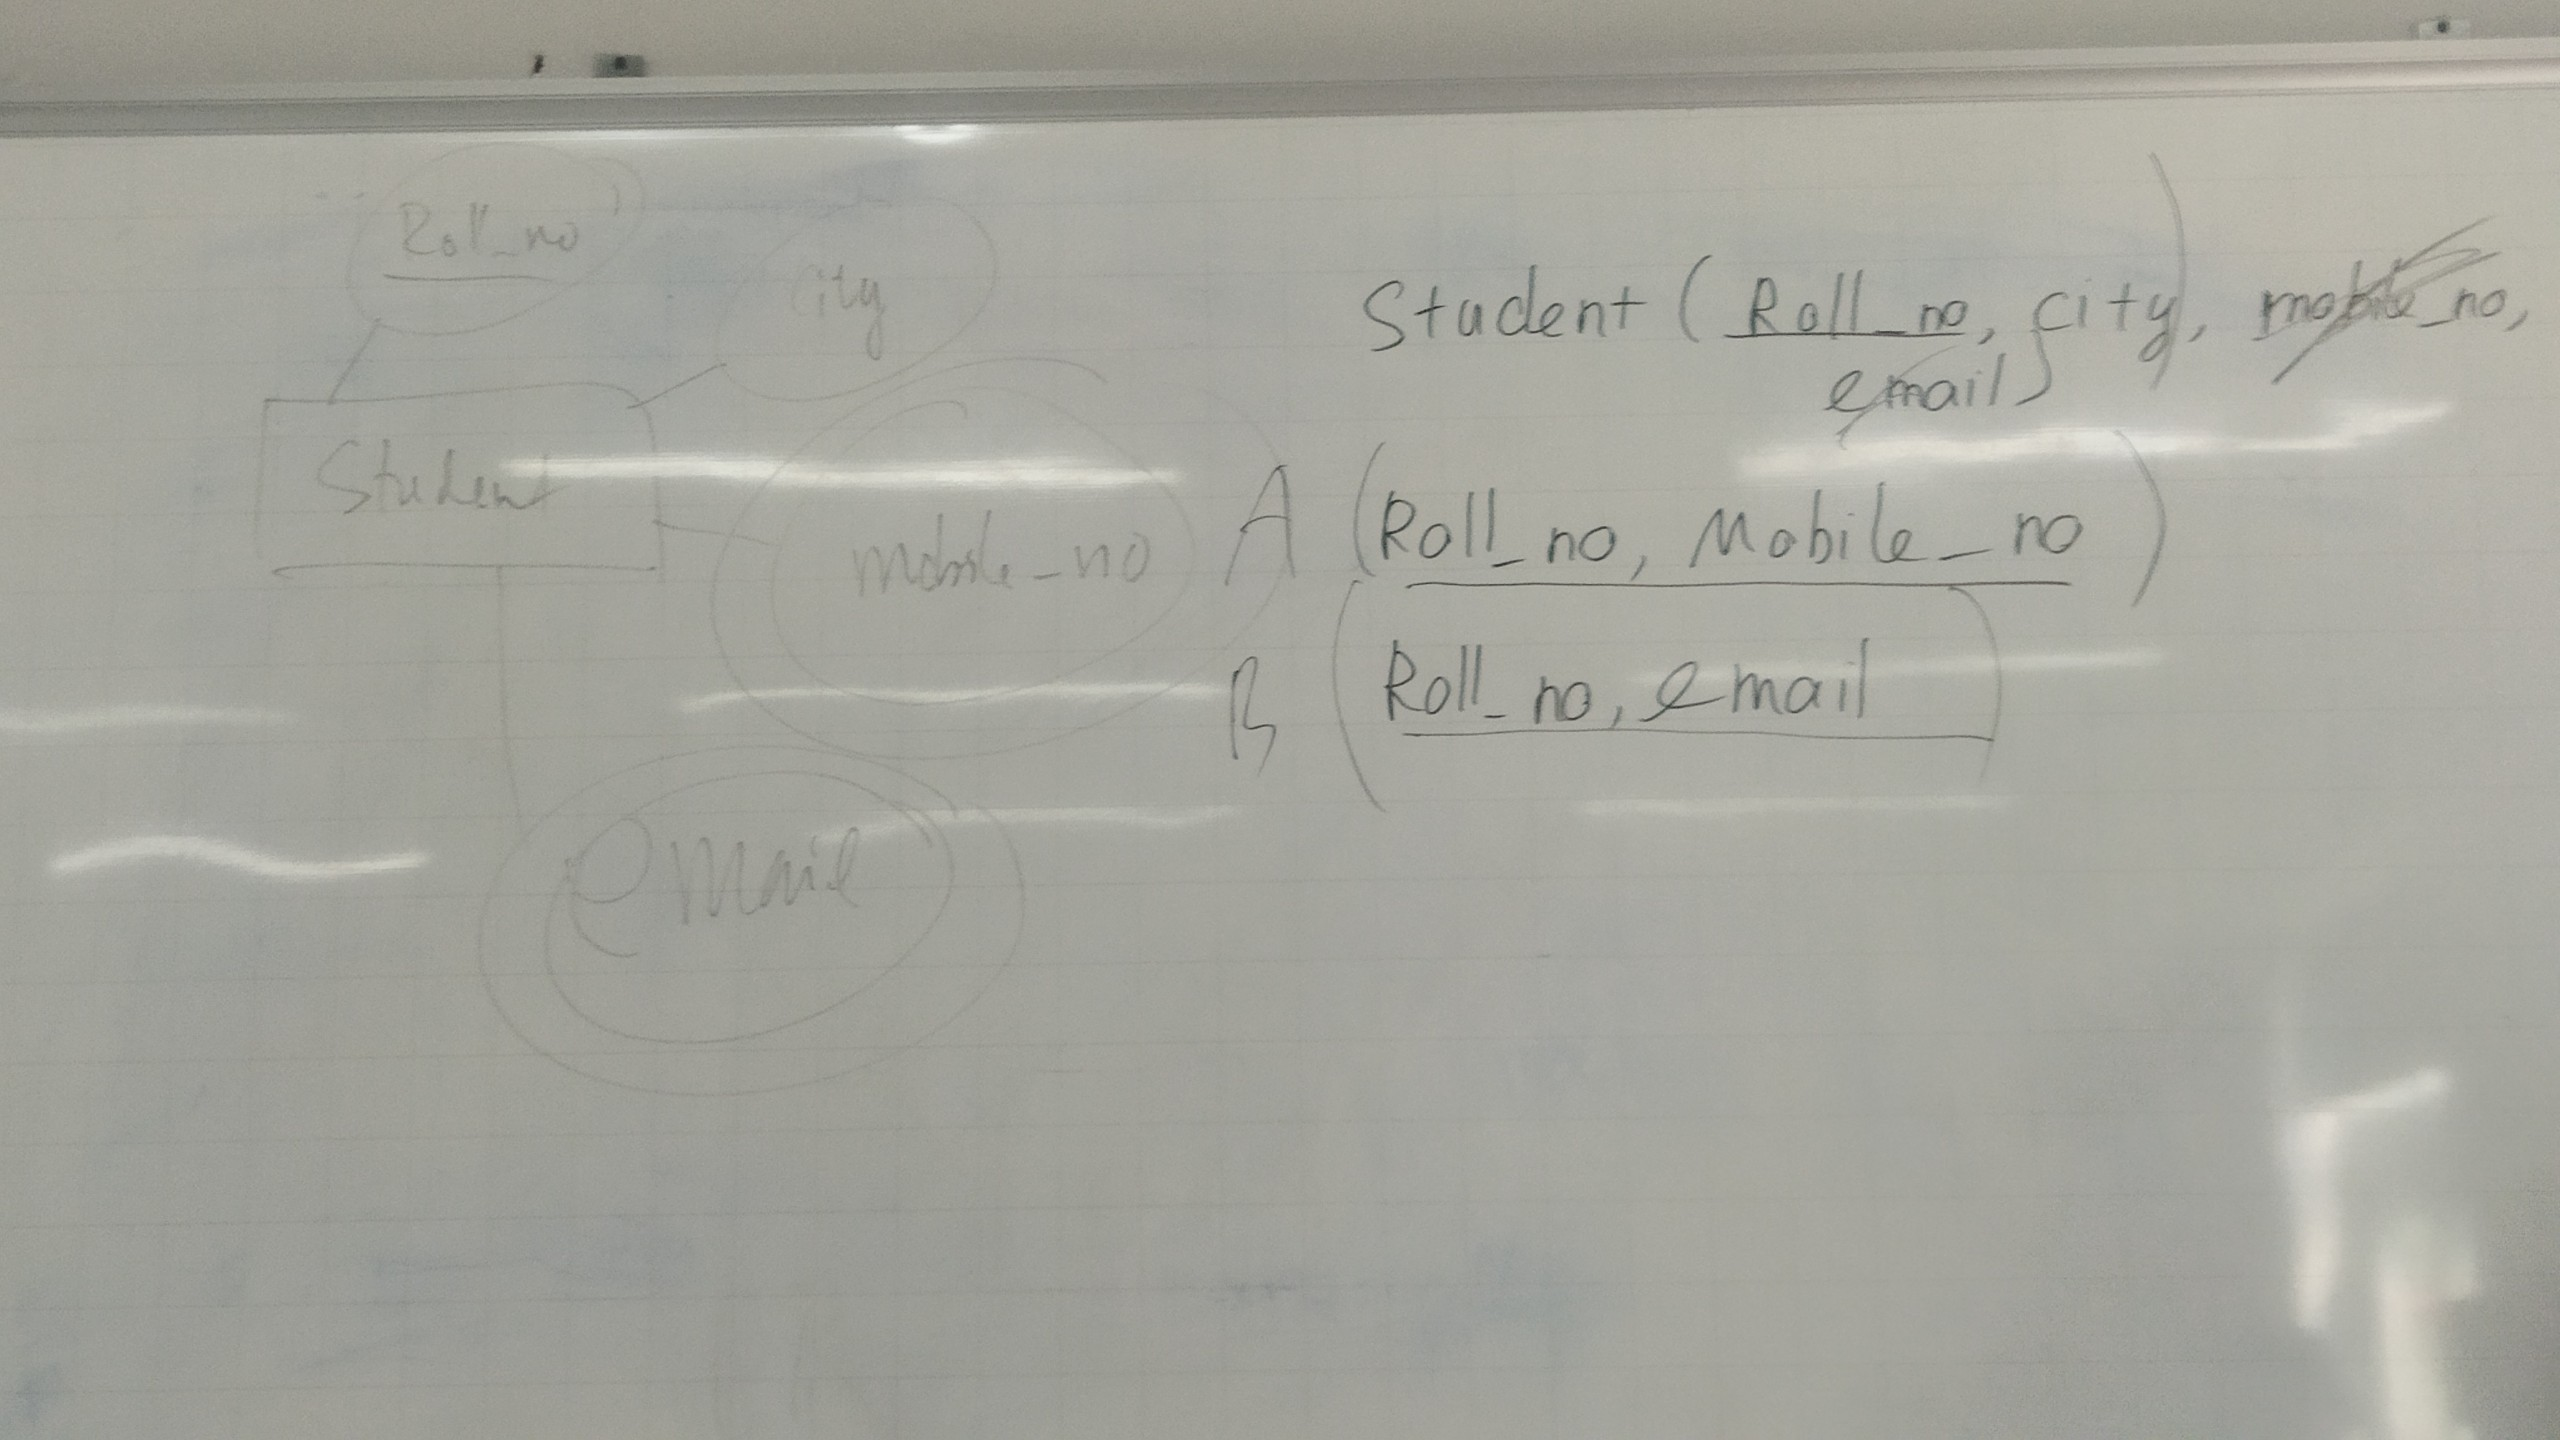 Roll_no
city
Student
mobile_no
email
Student (Roll_no, city), mobile_no,
email)
A (Roll_no, Mobile_no)
B (Roll_no, email)